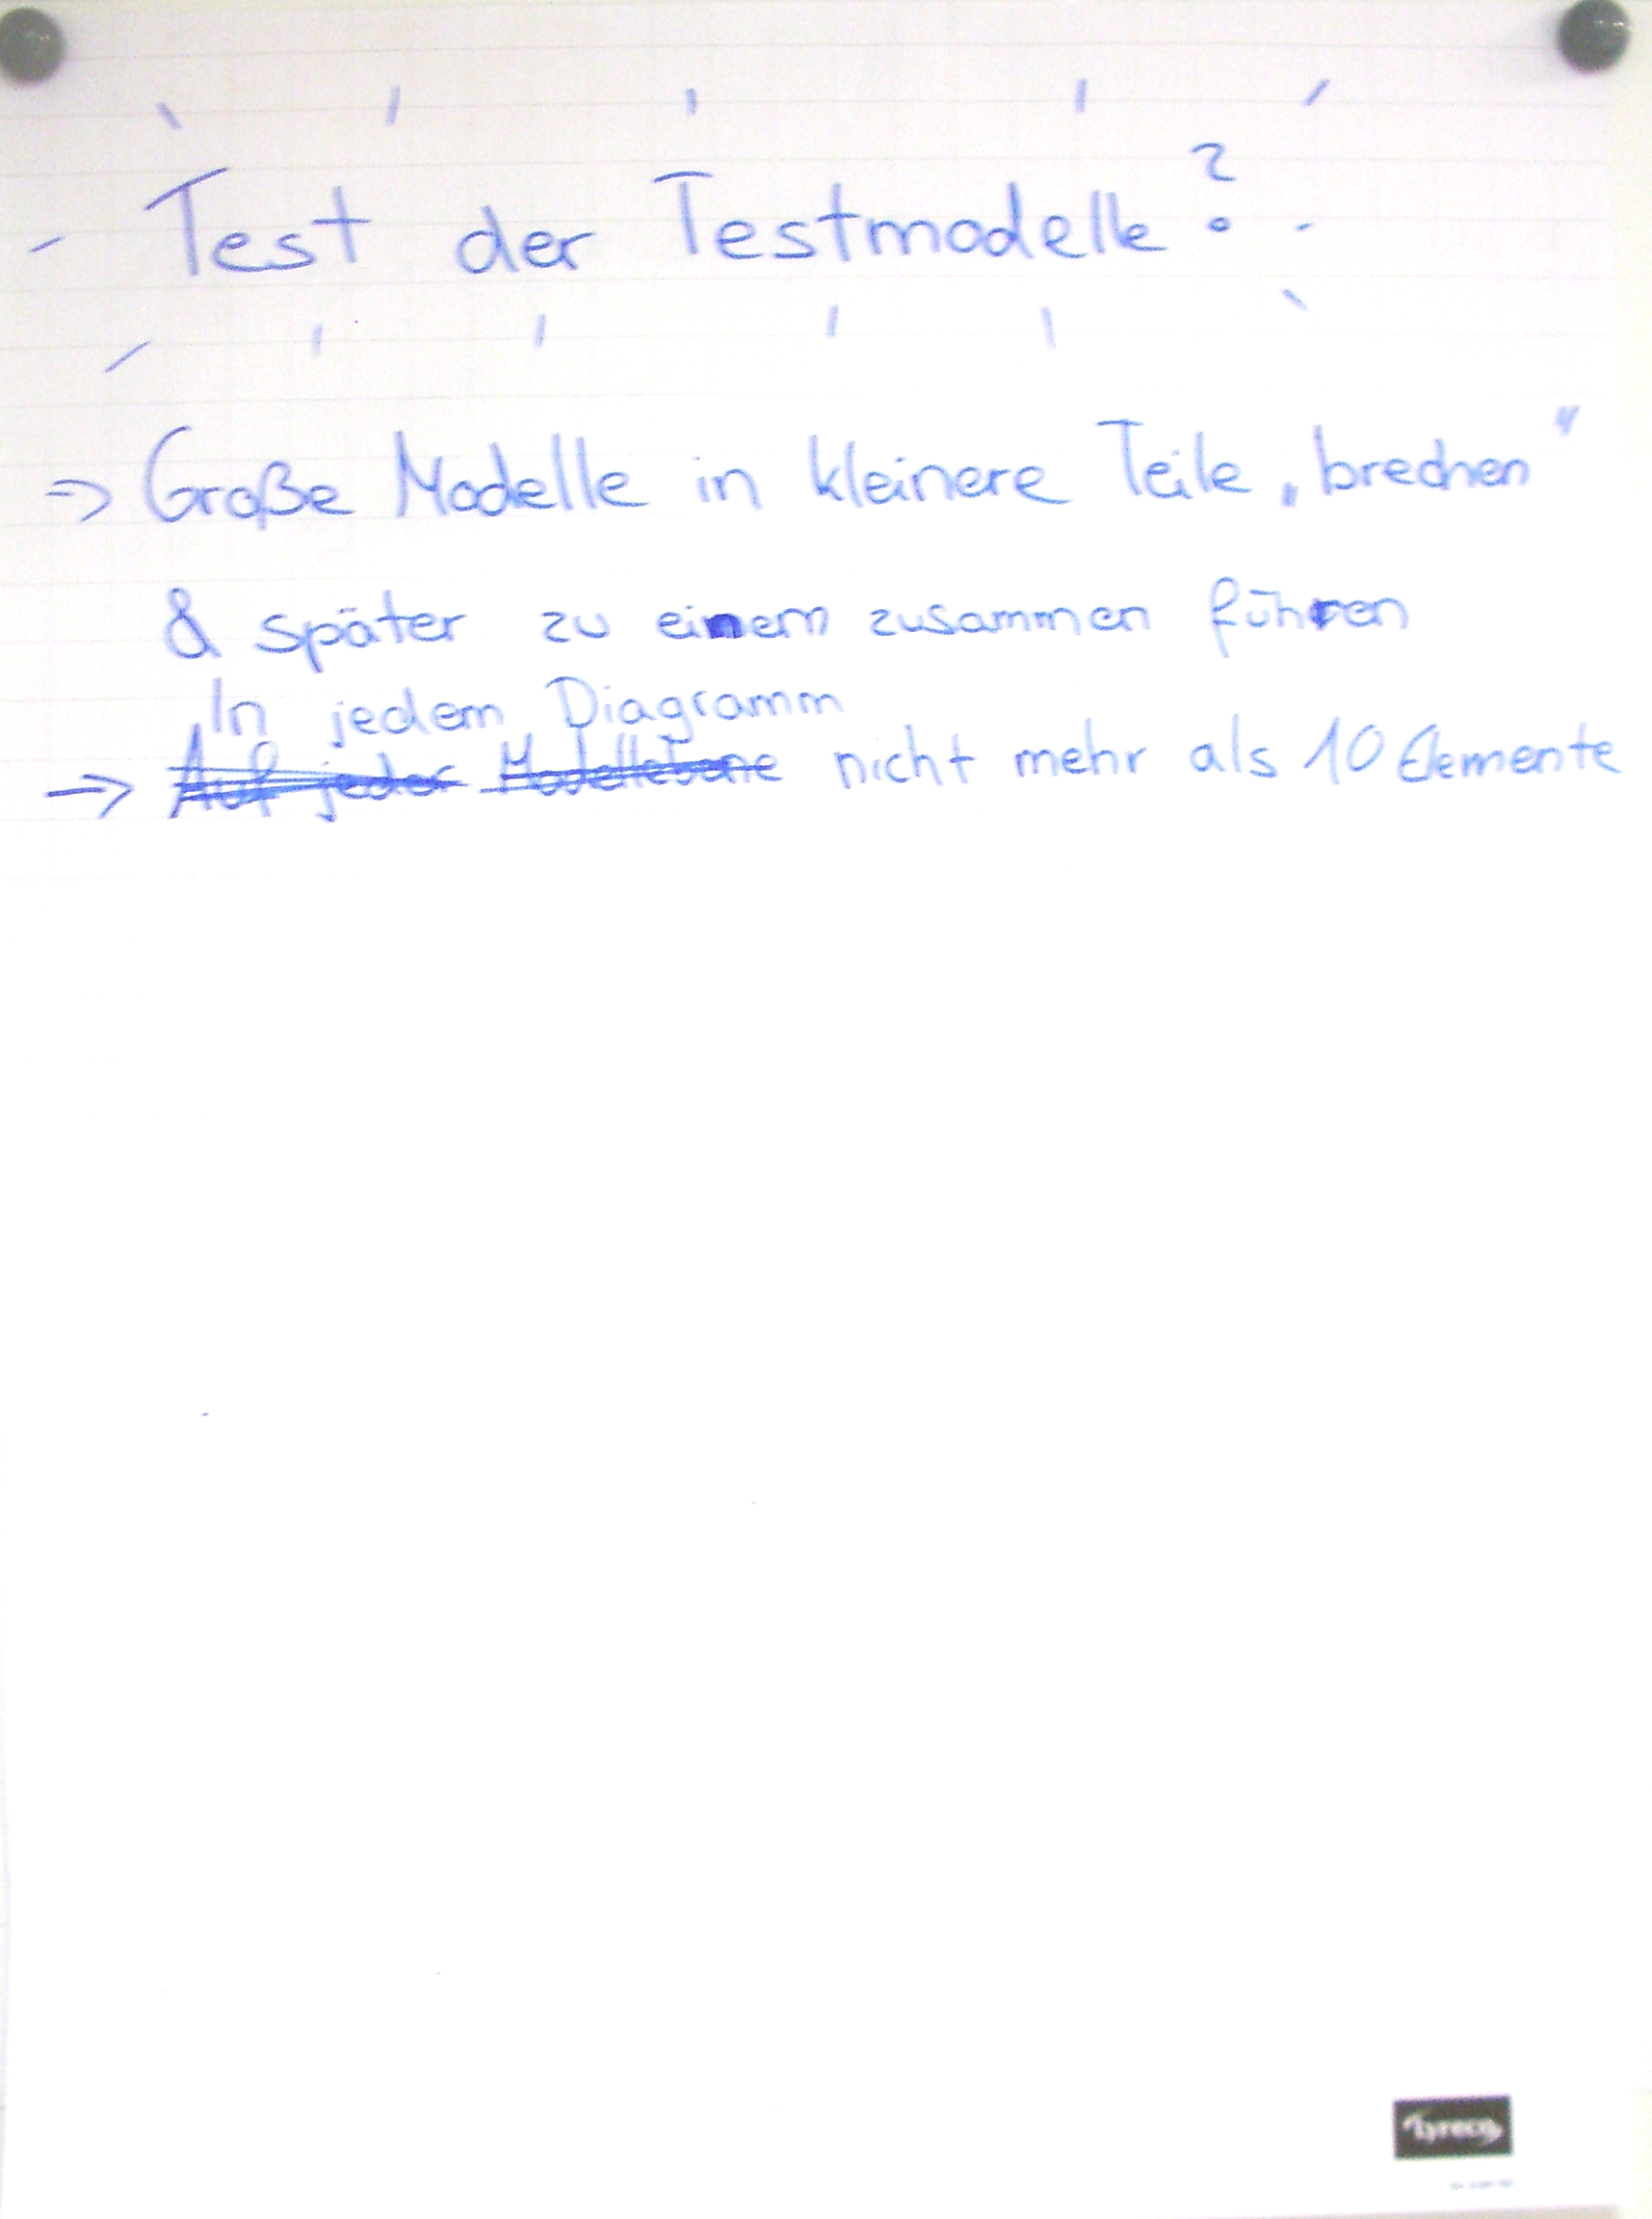 Test der Testmodelle?
=> Große Modelle in kleinere Teile „brechen"
& später zu einem zusammen führen
In jedem Diagramm
=> Auf jeder Modellebene nicht mehr als 10 Elemente
Lyreco